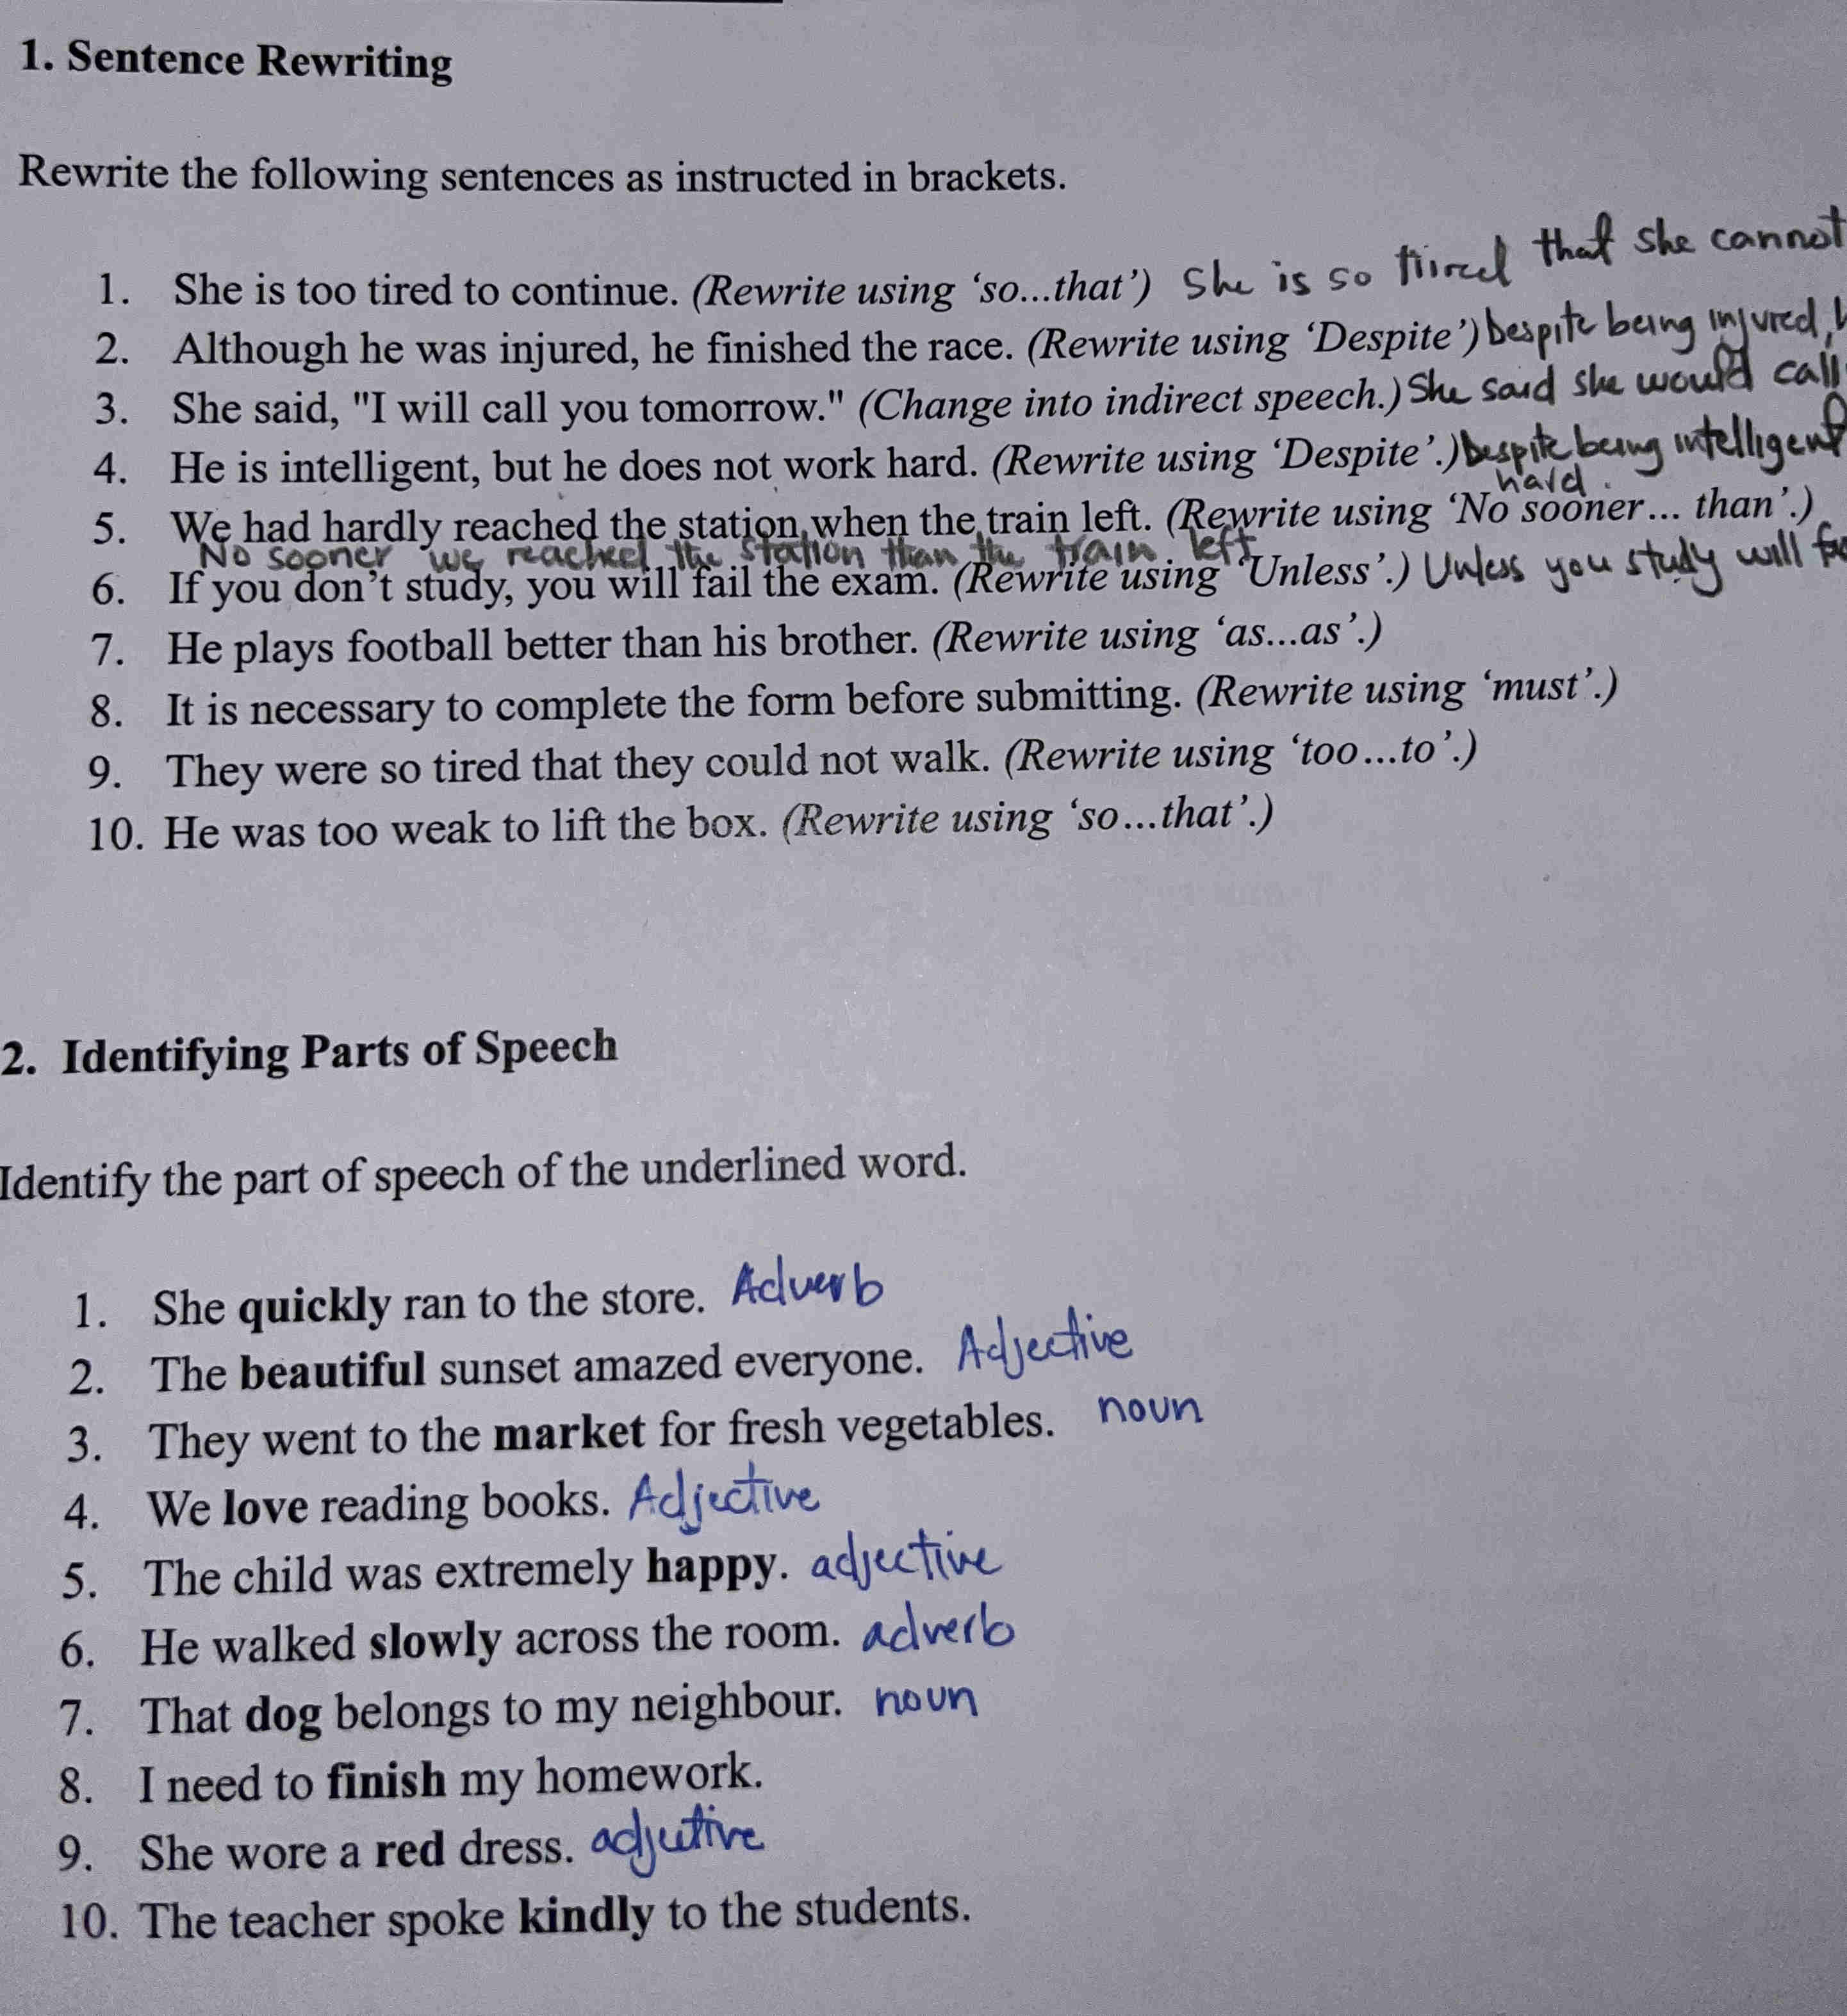 1. Sentence Rewriting
Rewrite the following sentences as instructed in brackets.
1. She is too tired to continue. (Rewrite using ‘so...that’) She is so tiired that she cannot
2. Although he was injured, he finished the race. (Rewrite using ‘Despite’) Despite being injured,
3. She said, "I will call you tomorrow." (Change into indirect speech.) She said she would call
4. He is intelligent, but he does not work hard. (Rewrite using ‘Despite’.) Despite being intelligent
hard.
5. We had hardly reached the station when the train left. (Rewrite using ‘No sooner... than’.)
No sooner we reached the station than the train left
6. If you don’t study, you will fail the exam. (Rewrite using ‘Unless’.) Unless you study will
7. He plays football better than his brother. (Rewrite using ‘as...as’.)
8. It is necessary to complete the form before submitting. (Rewrite using ‘must’.)
9. They were so tired that they could not walk. (Rewrite using ‘too...to’.)
10. He was too weak to lift the box. (Rewrite using ‘so...that’.)
2. Identifying Parts of Speech
Identify the part of speech of the underlined word.
1. She quickly ran to the store. Adverb
2. The beautiful sunset amazed everyone. Adjective
3. They went to the market for fresh vegetables. noun
4. We love reading books. Adjective
5. The child was extremely happy. adjective
6. He walked slowly across the room. adverb
7. That dog belongs to my neighbour. noun
8. I need to finish my homework.
9. She wore a red dress. adjective
10. The teacher spoke kindly to the students.